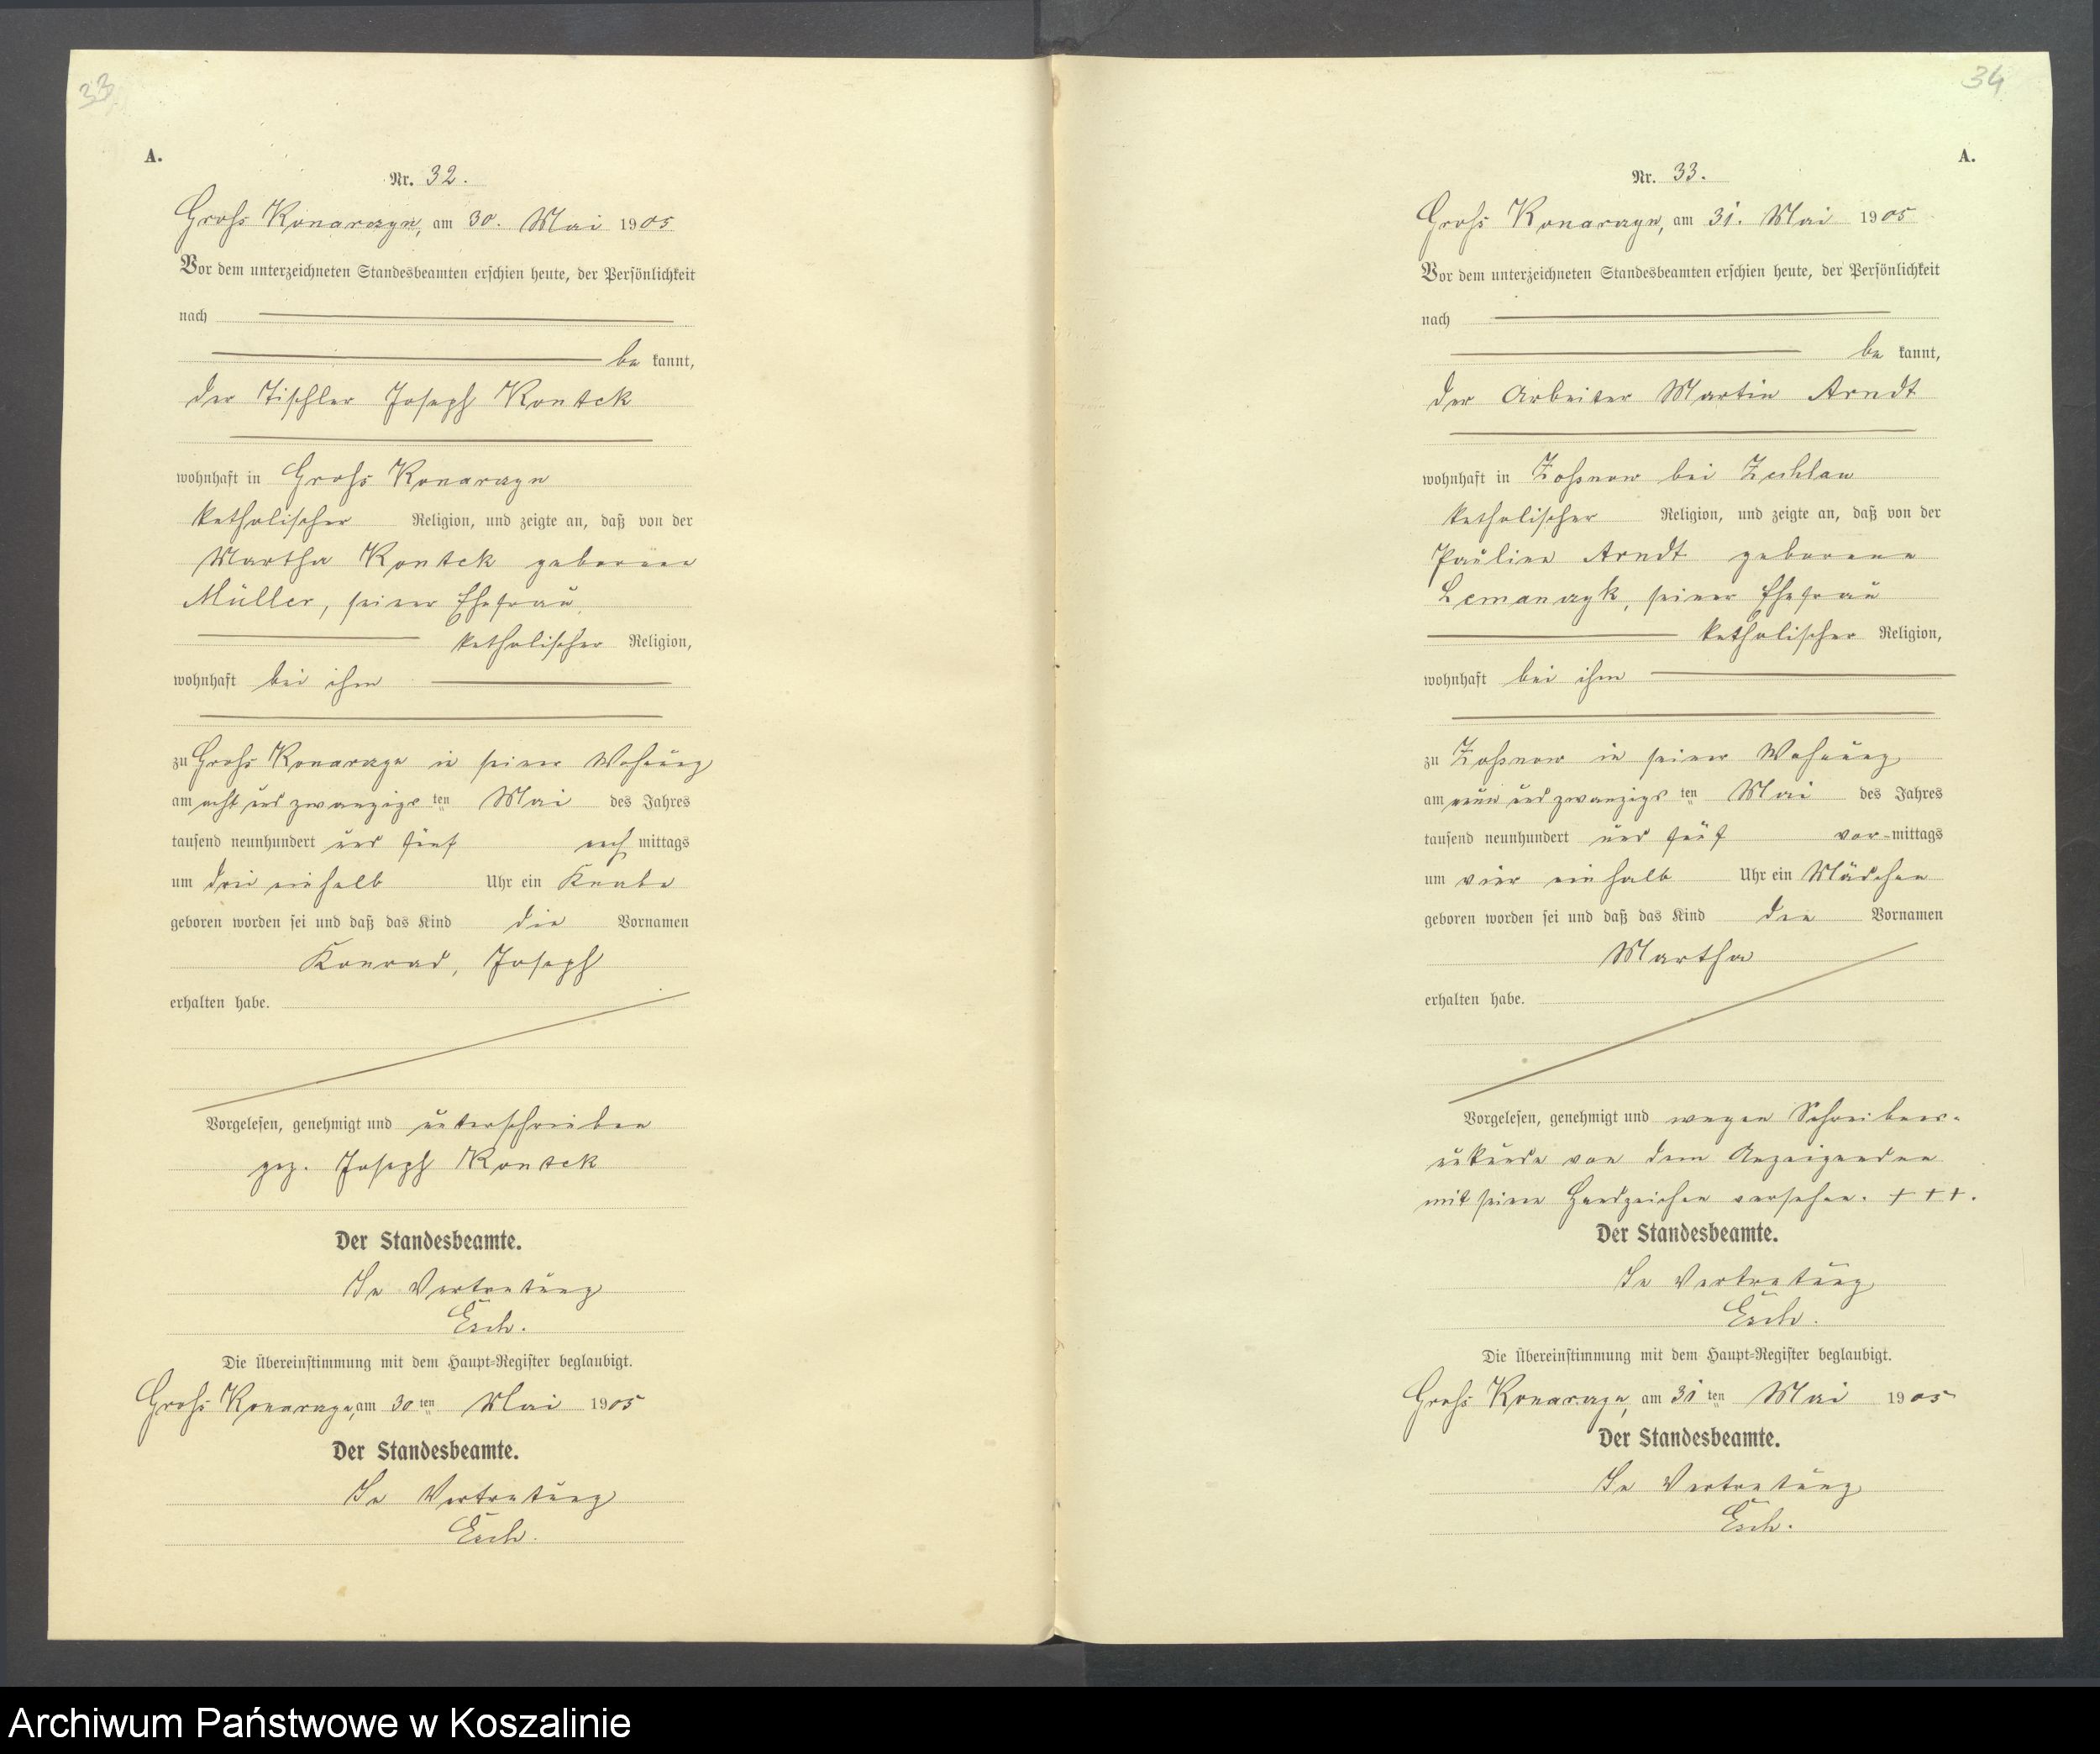 33
A.
Nr. 32.
Groß Konarczyn, am 30. Mai 1905
Vor dem unterzeichneten Standesbeamten erschien heute, der Persönlichkeit
nach
be kannt,
der Tischler Joseph Kontek
wohnhaft in Groß Konarczyn
katholischer Religion, und zeigte an, daß von der
Martha Kontek geborene
Müller, seiner Ehefrau
katholischer Religion,
wohnhaft bei ihm
zu Groß Konarczyn in seiner Wohnung
am acht und zwanzigs ten Mai des Jahres
tausend neunhundert und fünf nach mittags
um drei einhalb Uhr ein Knabe
geboren worden sei und daß das Kind die Vornamen
Konrad, Joseph
erhalten habe.
Vorgelesen, genehmigt und unterschrieben
gez. Joseph Kontek
Der Standesbeamte.
In Vertretung
Esch.
Die Übereinstimmung mit dem Haupt-Register beglaubigt.
Groß Konarczyn, am 30 ten Mai 1905
Der Standesbeamte.
In Vertretung
Esch.
34
A.
Nr. 33.
Groß Konarczyn, am 31. Mai 1905
Vor dem unterzeichneten Standesbeamten erschien heute, der Persönlichkeit
nach
be kannt,
der Arbeiter Martin Arndt
wohnhaft in Zoßnow bei Zechlau
katholischer Religion, und zeigte an, daß von der
Pauline Arndt geborene
Lemanczyk, seiner Ehefrau
katholischer Religion,
wohnhaft bei ihm
zu Zoßnow in seiner Wohnung
am neun und zwanzigs ten Mai des Jahres
tausend neunhundert und fünf vor-mittags
um vier einhalb Uhr ein Mädchen
geboren worden sei und daß das Kind den Vornamen
Martha
erhalten habe.
Vorgelesen, genehmigt und wegen Schreibens-
unkunde von dem Anzeigenden
mit seinem Handzeichen versehen. +++.
Der Standesbeamte.
In Vertretung
Esch.
Die Übereinstimmung mit dem Haupt-Register beglaubigt.
Groß Konarczyn, am 31 ten Mai 1905
Der Standesbeamte.
In Vertretung
Esch.
Archiwum Państwowe w Koszalinie